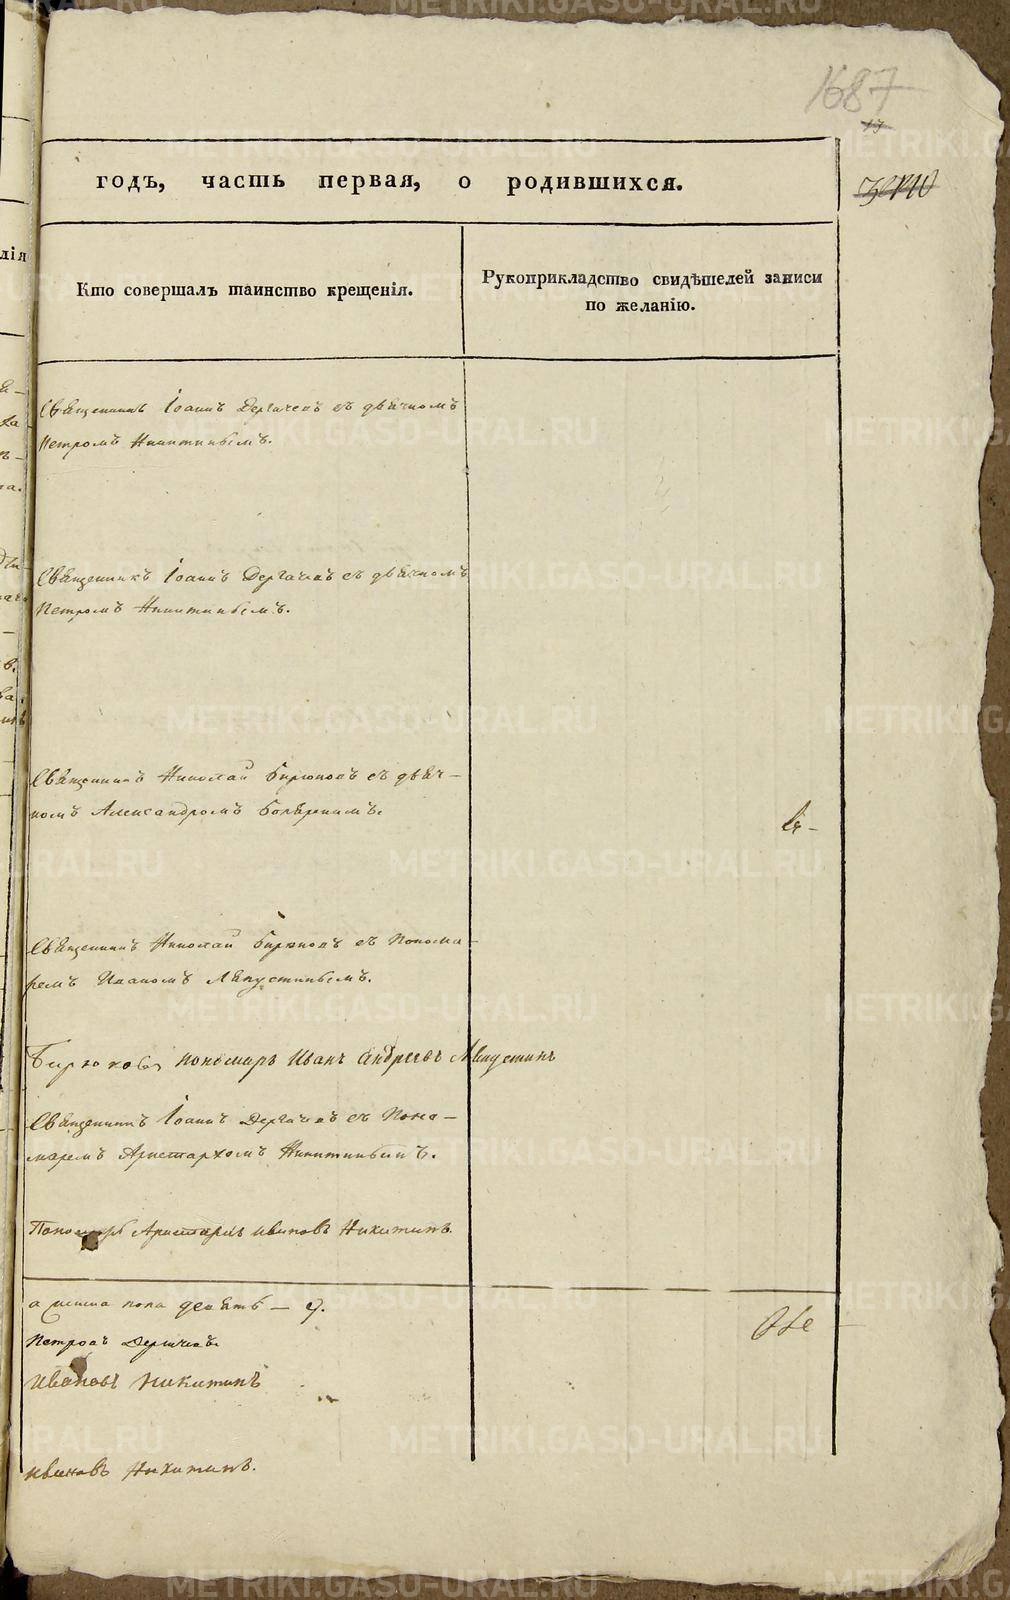 1687
годъ, часть первая, о родившихся.
Кто совершалъ таинство крещенія.
Рукоприкладство свидѣтелей записи
по желанію.
Священникъ Іоаннъ Дергачевъ съ дьячкомъ
Петромъ Никитинымъ.
Священникъ Іоаннъ Дергачевъ съ дьячкомъ
Петромъ Никитинымъ.
Священникъ Николай Бирюковъ съ дьяч-
комъ Александромъ
Священникъ Николай Бирюковъ съ Понома-
ремъ Иваномъ
Бирюковъ пономарь Иванъ Андреевъ
Священникъ Іоаннъ Дергачевъ съ Поно-
маремъ Аристархомъ Никитинымъ.
Пономарь Аристархъ Ивановъ Никитинъ.
пола девять - 9.
Петровъ Дергачевъ
Ивановъ Никитинъ
Ивановъ Никитинъ.
METRIKI.GASO-URAL.RU